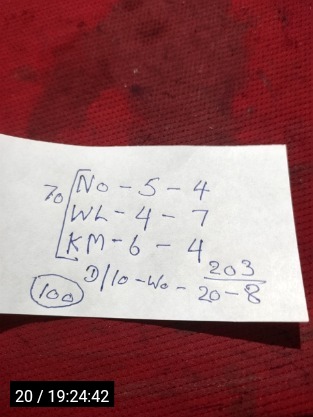 70 No - 5 - 4
WL - 4 - 7
KM - 6 - 4
100 D/10 - Wo - 203
20 - 8
20 / 19:24:42